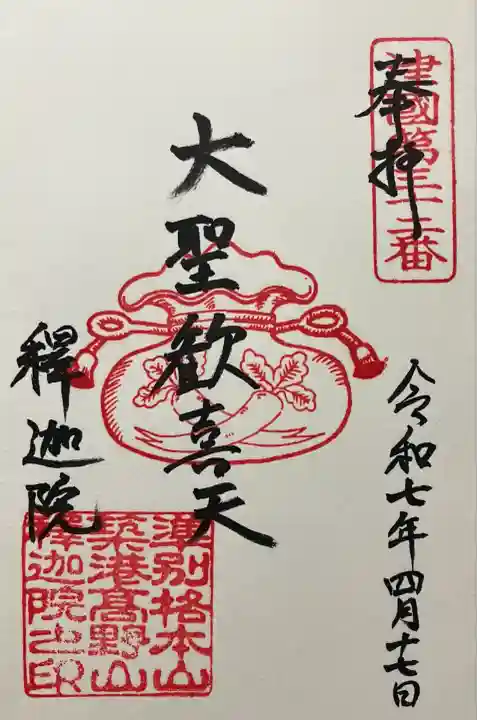 建國第三十二番
奉拝
令和七年四月十七日
大聖歓喜天
釋迦院
準別格本山
築港高野山
釋迦院之印